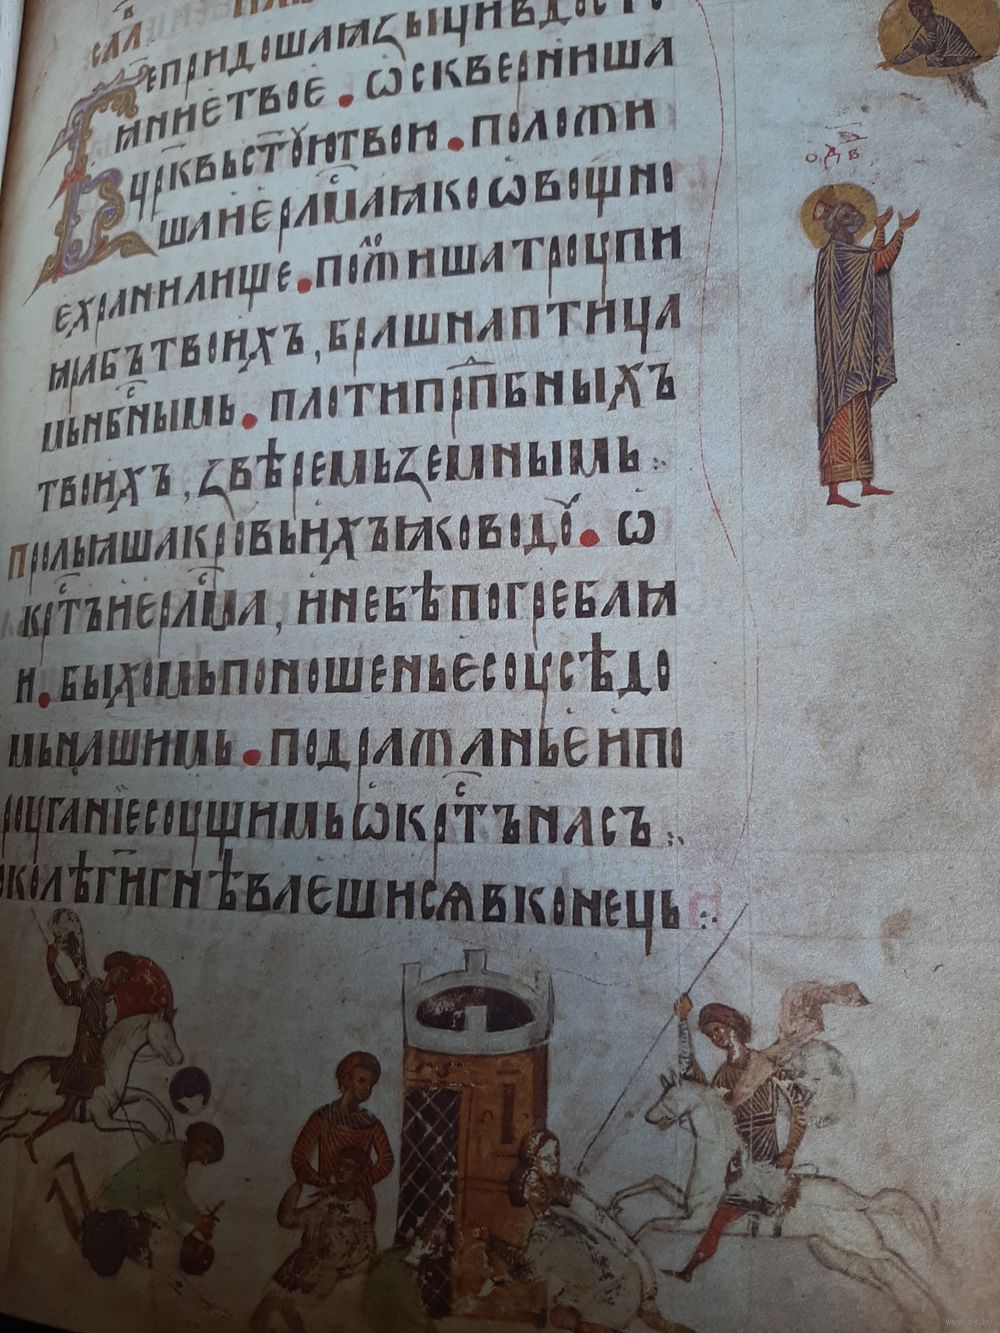 ПСА
Бепридошаꙗꙁыцивдосто
ꙗниетвое . ѡскверниша
црквьстоуютвою . положи
шаиерл҃мꙗкоовощно
ехранилище . положишатроупи
ꙗрабътвоихъ , брашнаптица
мьнбс҃нымь . плотипрп҃бныхъ
твоихъ , ꙁвѣремьꙁемнымь :.
пролꙗшакровьихъꙗководоу . ѡ
крс҃тъиерс҃лма , инебѣпогребаꙗ
и . быхомьпоношеньесоусѣдо
мьнашимь . подражаньеипо
роуганїесоущимьѡкрс҃тънасъ :.
околѣгн҃игнѣвлешисѧвконець :.
о Д҃В
www.ay.by